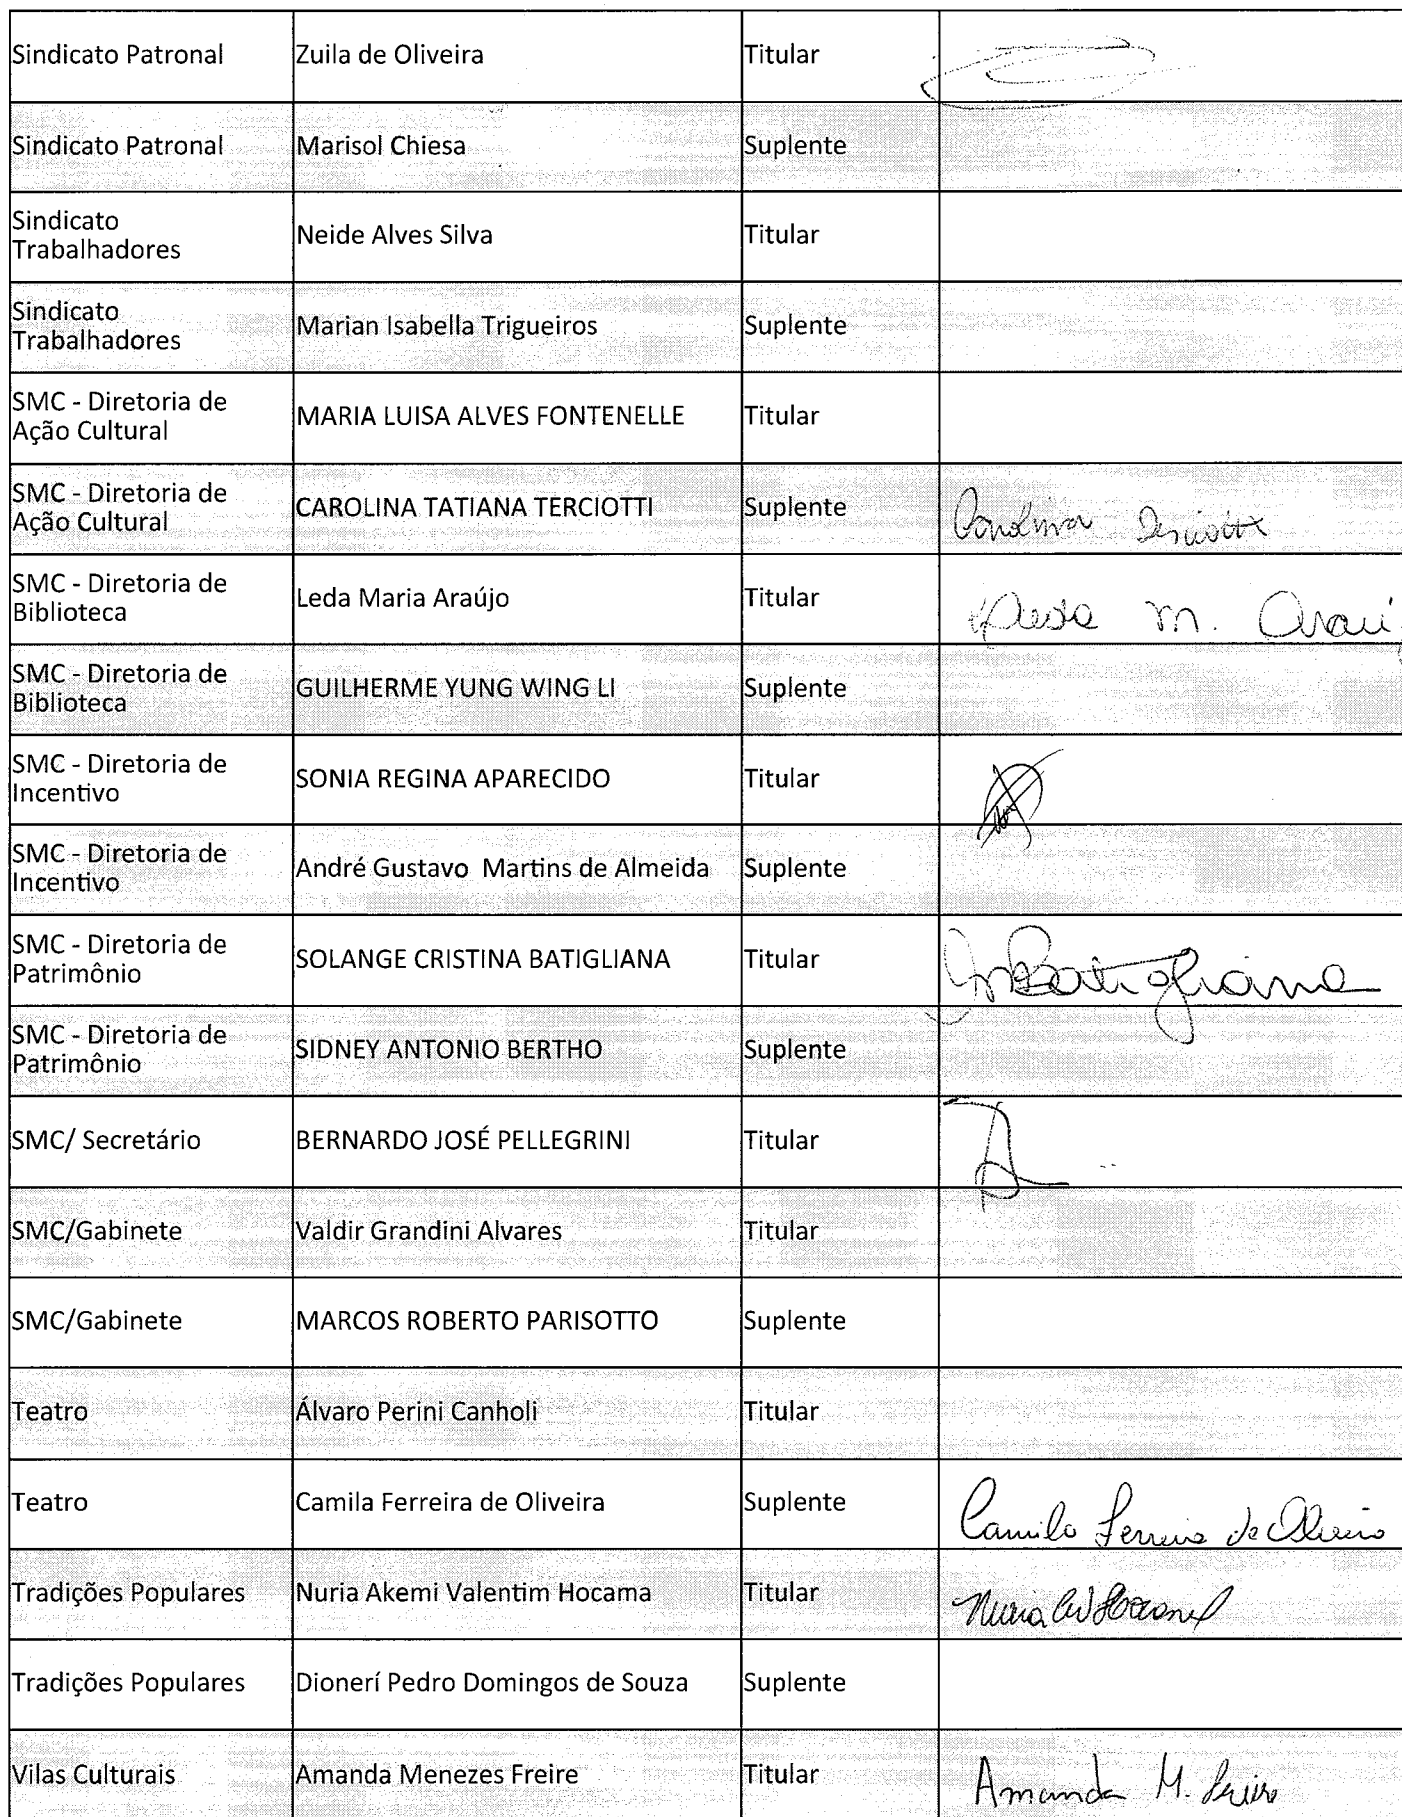 Sindicato Patronal Zuila de Oliveira Titular
Sindicato Patronal Marisol Chiesa Suplente
Sindicato
Trabalhadores Neide Alves Silva Titular
Sindicato
Trabalhadores Marian Isabella Trigueiros Suplente
SMC - Diretoria de
Ação Cultural MARIA LUISA ALVES FONTENELLE Titular
SMC - Diretoria de
Ação Cultural CAROLINA TATIANA TERCIOTTI Suplente Carolina Terciotti
SMC - Diretoria de
Biblioteca Leda Maria Araújo Titular Leda M. Arauj
SMC - Diretoria de
Biblioteca GUILHERME YUNG WING LI Suplente
SMC - Diretoria de
Incentivo SONIA REGINA APARECIDO Titular
SMC - Diretoria de
Incentivo André Gustavo Martins de Almeida Suplente
SMC - Diretoria de
Patrimônio SOLANGE CRISTINA BATIGLIANA Titular Batigliana
SMC - Diretoria de
Patrimônio SIDNEY ANTONIO BERTHO Suplente
SMC/ Secretário BERNARDO JOSÉ PELLEGRINI Titular
SMC/Gabinete Valdir Grandini Alvares Titular
SMC/Gabinete MARCOS ROBERTO PARISOTTO Suplente
Teatro Álvaro Perini Canholi Titular
Teatro Camila Ferreira de Oliveira Suplente Camila Ferreira de Oliveira
Tradições Populares Nuria Akemi Valentim Hocama Titular Nuria
Tradições Populares Dionerí Pedro Domingos de Souza Suplente
Vilas Culturais Amanda Menezes Freire Titular Amanda M. Freire